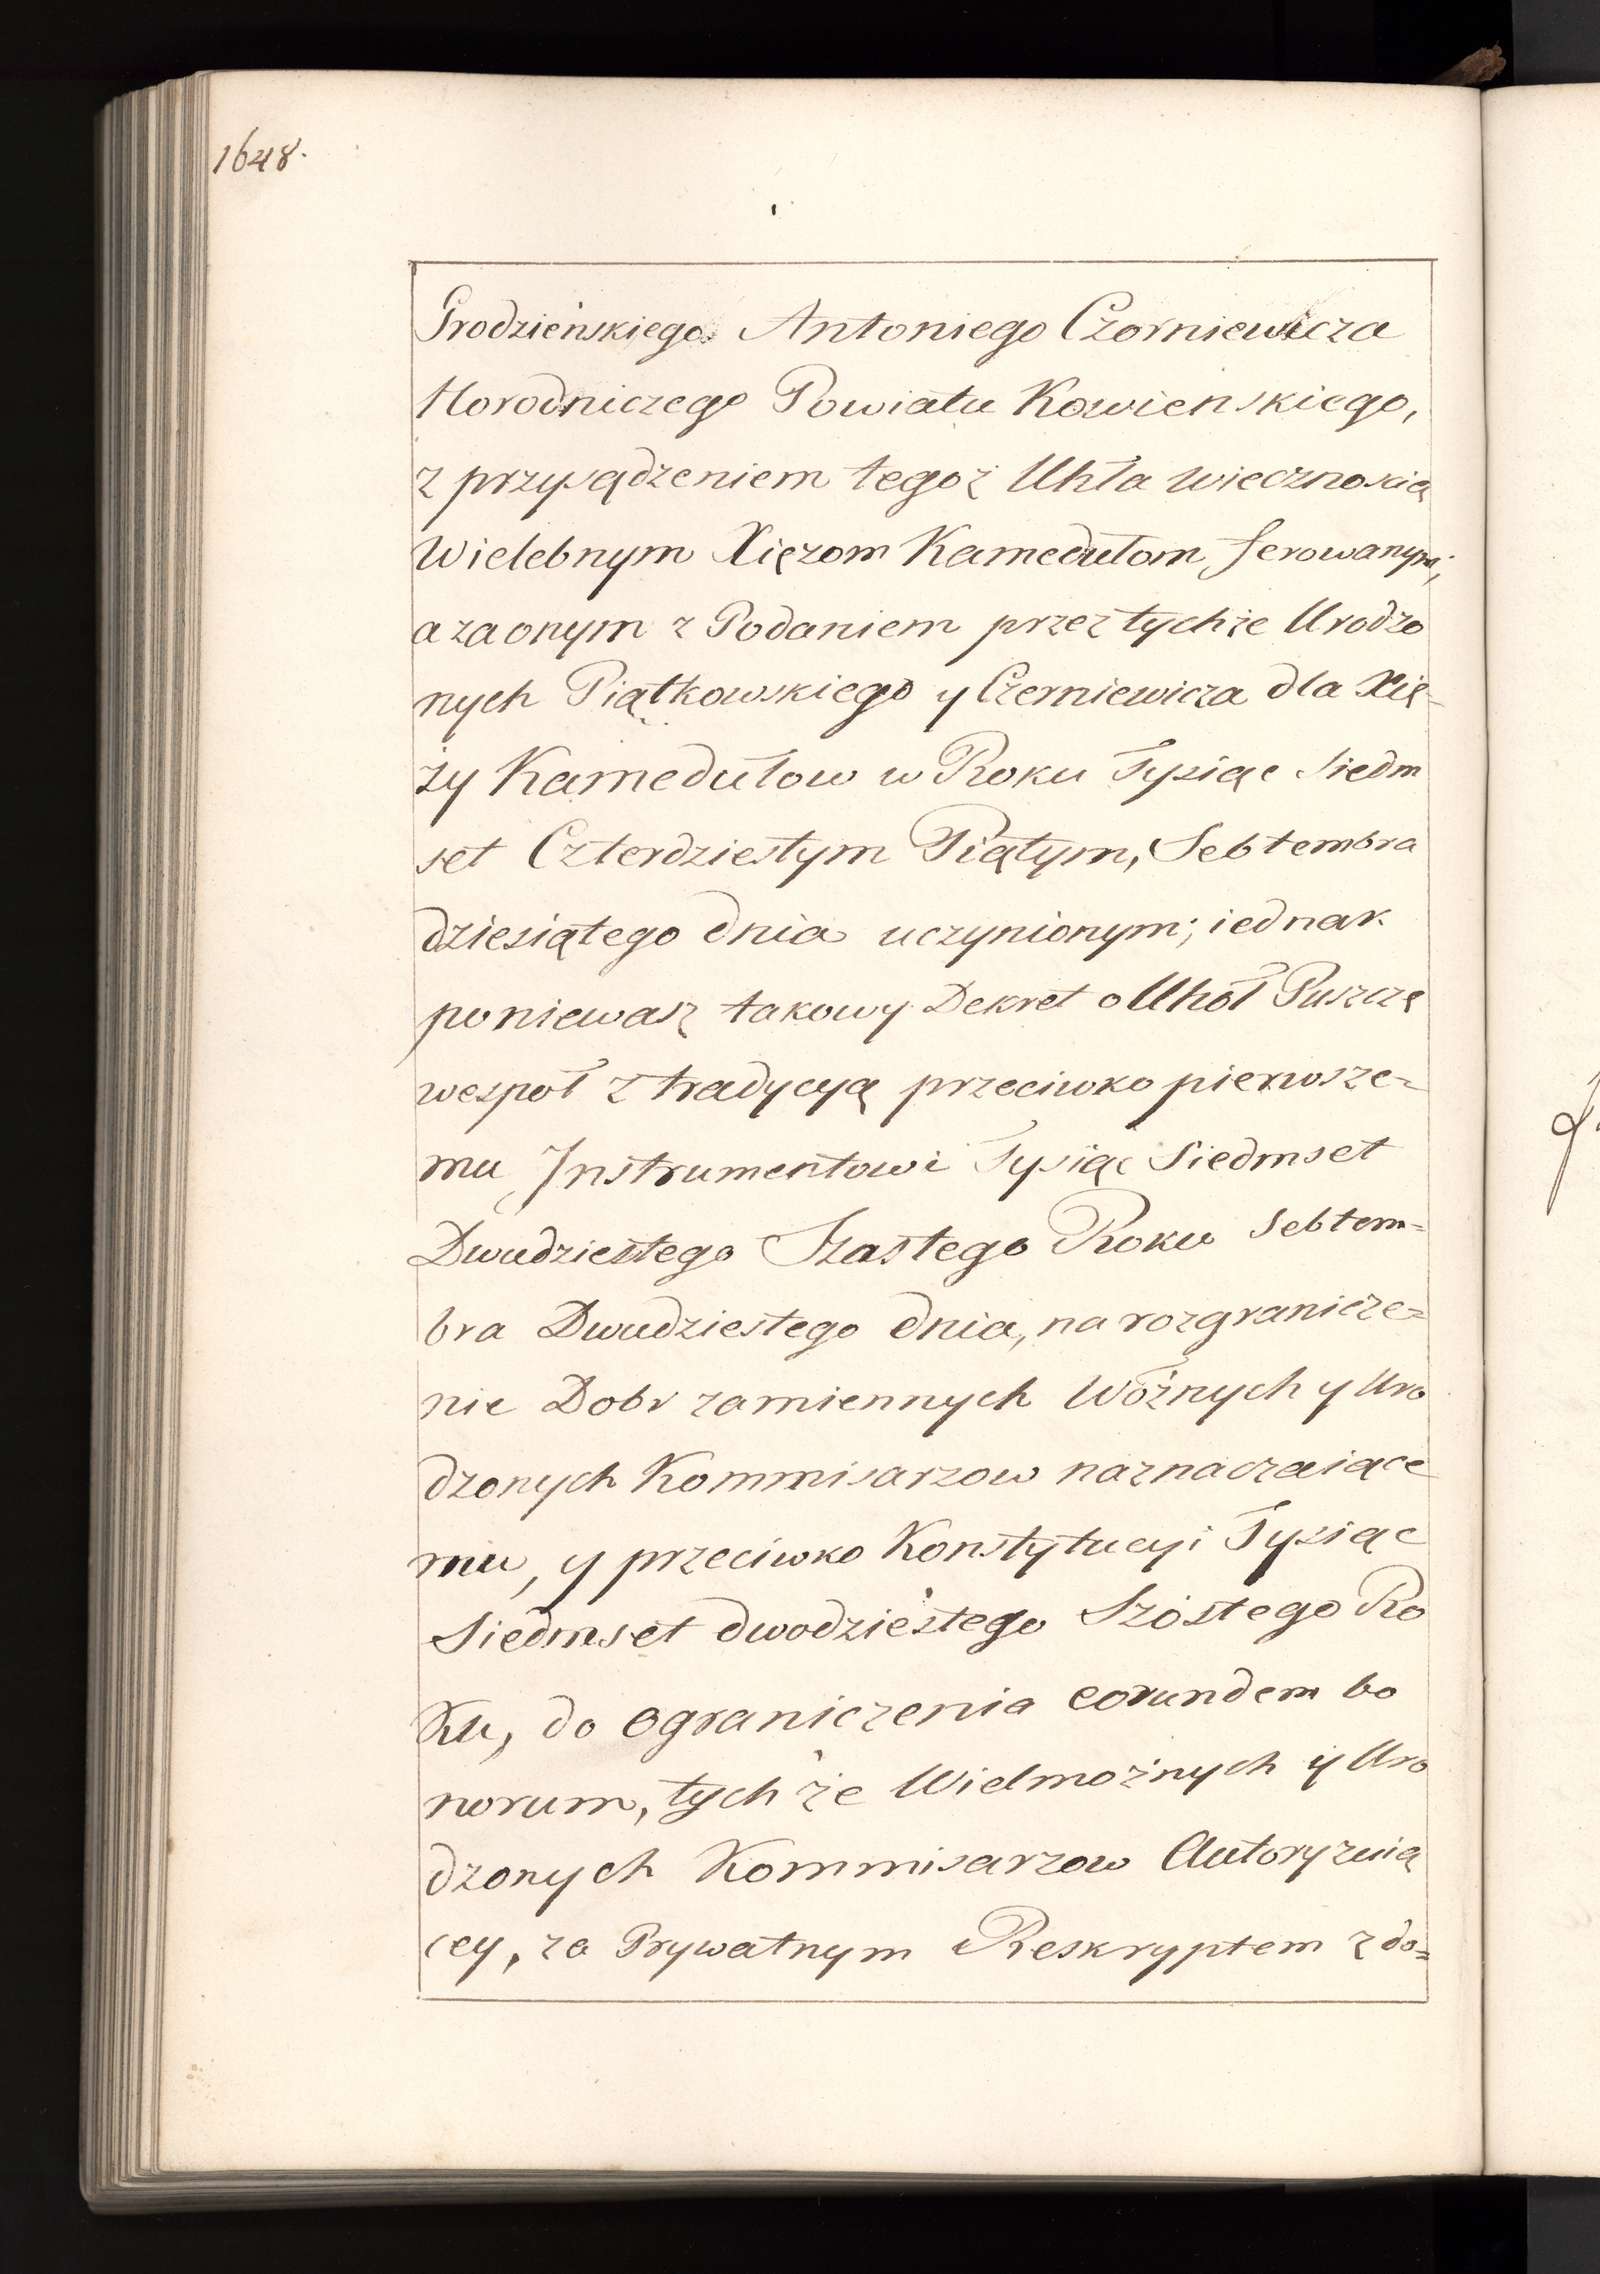 1648.
Grodzieńskiego. Antoniego Czorniewicza
Horodniczego Powiatu Kowienskiego,
z przysądzeniem tegoż Uhła wiecznoscią
Wielebnym Xięzom Kamedułom ferowanym;
a za onym z Podaniem przez tychże Urodzo
nych Piątkowskiego y Czerniewicza dla Xię-
ży Kamedułow w Roku Tysiąc Siedm
set Czterdziestym Piątym, Sebtembra
dziesiątego dnia uczynionym; iednak
poniewasz takowy Dekret o Uhoł Puszczę
wespoł z tradycyą przeciwko pierwsze=
mu Instrumentowi Tysiąc Siedmset
Dwudziestego Szastego Roku Sebtem=
bra Dwudziestego dnia, na rozgranicze=
nie Dobr zamiennych Wożnych y Uro
dzonych Kommisarzow naznaczaiące
mu, y przeciwko Konstytucyi Tysiąc
Siedmset dwodziestego Szóstego Ro
ku, do ograniczenia eorundem bo
norum, tychże Wielmożnych y Uro
dzonych Kommisarzow Autoryzuią
cey, za Prywatnym Reskryptem z do=